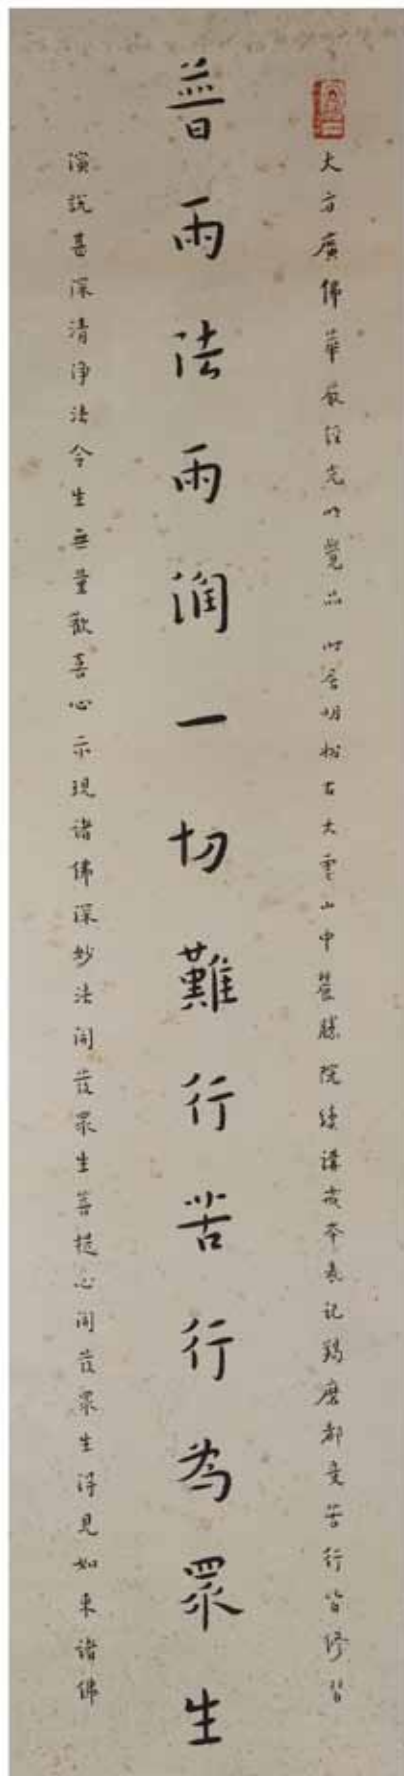 大方廣佛華嚴經光明覺品 時居明松古大雲山中 院續講戒本表記羯磨 都 受苦行皆修習
普雨法雨潤一切難行苦行為眾生
演說甚深清淨法令生無量歡喜心示現諸佛深妙法開發眾生菩提心開發眾生得見如來諸佛